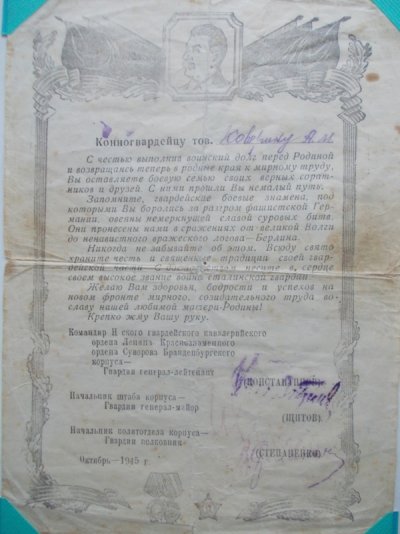 Конногвардейцу тов.
С честью выполнив воинский долг перед Родиной
и возвращаясь теперь в родные края к мирному труду,
Вы оставляете боевую семью своих верных сорат-
ников и друзей. С ними прошли Вы немалый путь.
Запомните, гвардейские боевые знамена, под
которыми Вы боролись за разгром фашистской Гер-
мании, овеяны немеркнущей славой суровых битв.
Они пронесены нами в сражениях от великой Волги
до ненавистного вражеского логова—Берлина.
Никогда не забывайте об этом. Всюду свято
храните честь и священные традиции своей гвар-
дейской части. С достоинством несите в сердце
своем высокое звание воина сталинской гвардии.
Желаю Вам здоровья, бодрости и успехов на
новом фронте мирного, созидательного труда во
славу нашей любимой матери-Родины!
Крепко жму Вашу руку.
Командир Н ского гвардейского кавалерийского
ордена Ленина Краснознаменного
ордена Суворова Бранденбургского
корпуса—
Гвардии генерал-лейтенант
(КОНСТАНТИНОВ)
Начальник штаба корпуса—
Гвардии генерал-майор
(ЩИТОВ)
Начальник политотдела корпуса—
Гвардии полковник
(СТЕПАНЕНКО)
Октябрь—1945 г.